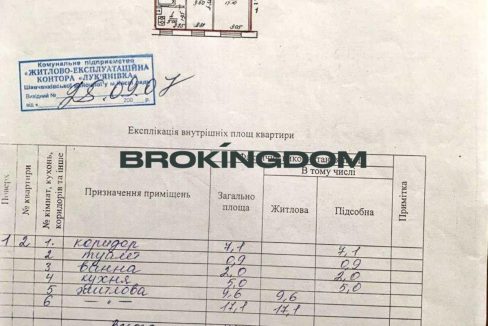 9.60 17.10
3.05
Комунальне підприємство
«ЖИТЛОВО-ЕКСПЛУАТАЦІЙНА
КОНТОРА «ЛУК'ЯНІВКА»
Вихідний №
від « 200 р.
25.09.07
Експлікація внутрішніх площ квартири
BROKINGDOM
В тому числі
Поверх
№ квартири
№ кімнат, кухонь, коридорів та інше
Призначення приміщень
Загально площа
Житлова
Підсобна
Примітка
1 2 1. коридор 7,1 7,1
2 туалет 0,9 0,9
3 ванна 2,0 2,0
4 кухня 5,0 5,0
5 житлова 9,6 9,6
6 — „ — 17,1 17,1